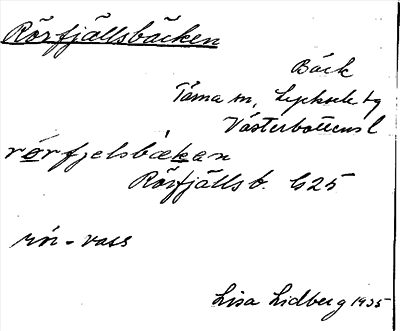 Rörfjällsbäcken
Bäck
Tärna sn, Lycksele tg
Västerbottens l
rörfjelsbäkan
Rörfjälls b. G25
rör = vass
Lisa Lidberg 1935